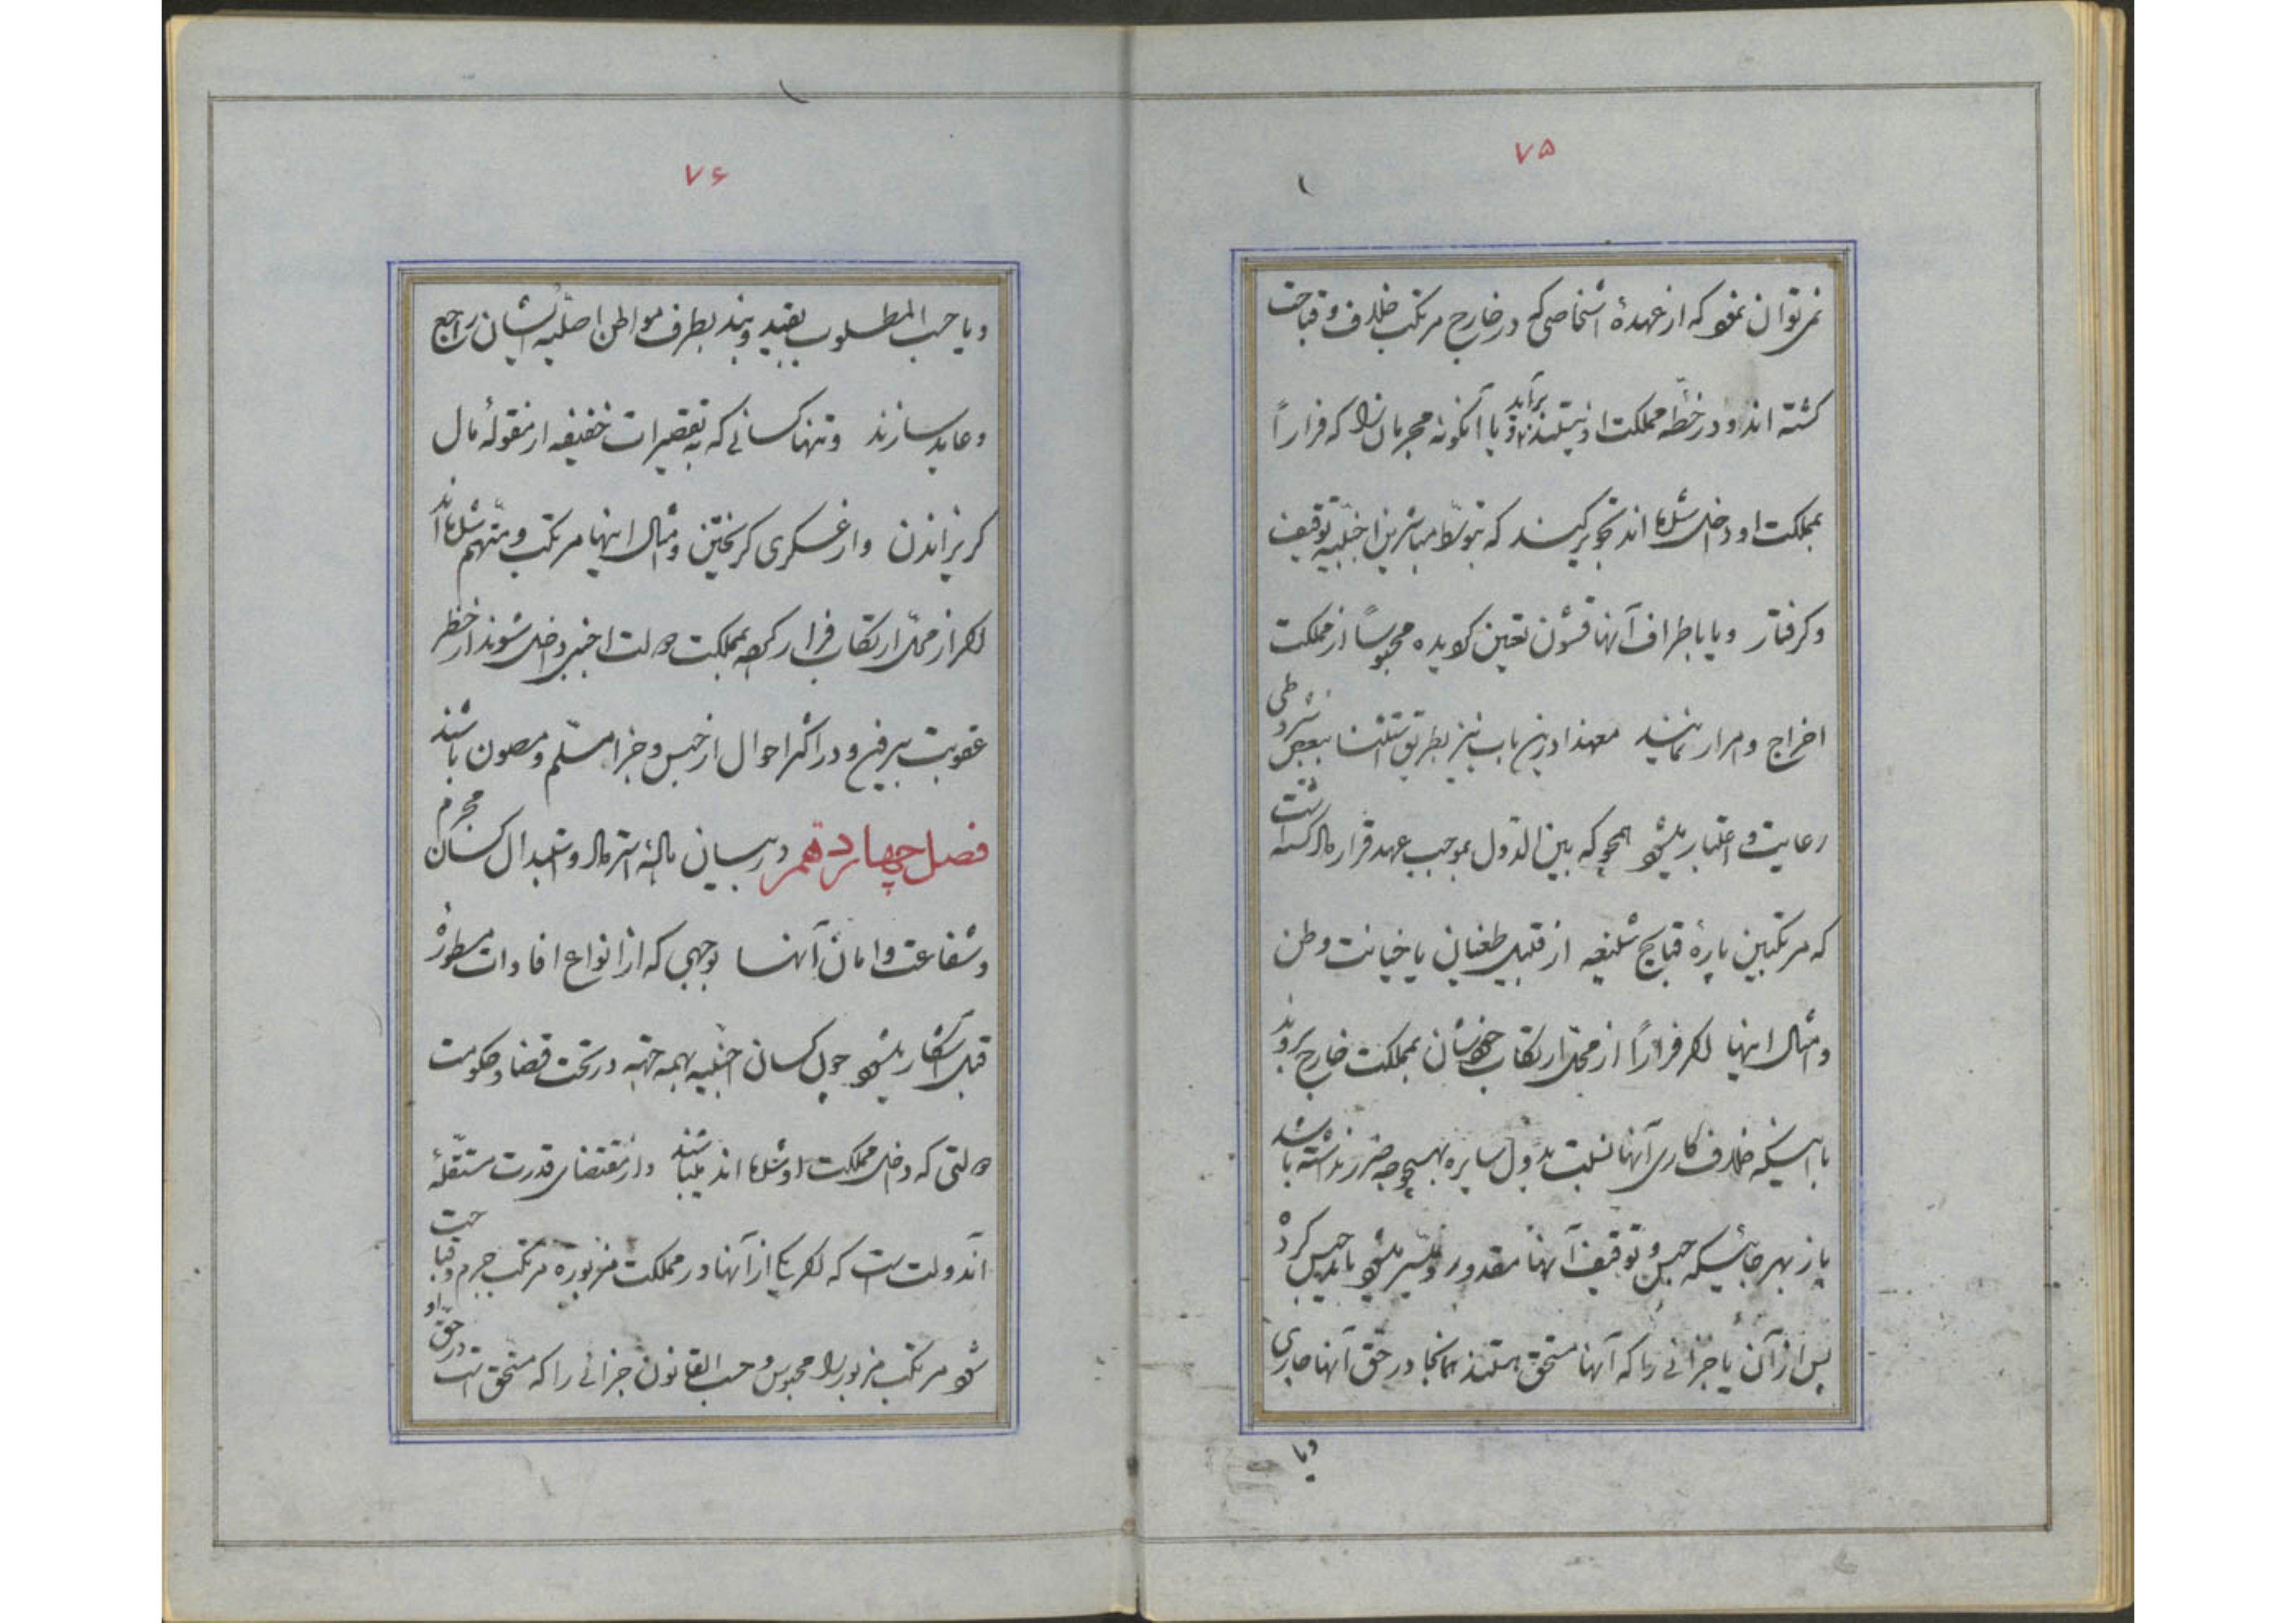 ۷۵
نمی‌توان نمود که از عهدهٔ اشخاصی که در خارج مرتکب خلاف و قباحت
کشته اند و در خطّه مملکت او نیستند برآید و یا آنکونه مجرمان را که فراراً
بمملکت او داخل شده اند تجویز کند که بتوسّط مباشرین اجنبیه توقیف
و کرفتار و یا باطراف آنها قشون تعیین کردیده محبوساً از مملکت
اخراج و امرار نمایند معهذا درین باب نیز بطریق استثنا ببعض شروطی
رعایت و اعتبار میشود همچو که بین الدول بموجب عهد قرارداده شده است
که مرتکبین پارهٔ قبایح شنیعه از قبیل طغیان یا خیانت وطن
و امثال اینها اکر فراراً از محلّ ارتکاب خودشان بمملکت خارج بروند
با اینکه خلاف کاری آنها نسبت بدول سایره بهیچوجه ضرر نداشته باشد
باز بهر جائیکه حبس و توقیف آنها مقدور و میسّر میشود باید حبس کرد
پس از آن یا جزائی را که آنها مستحق هستند همانجا در حق آنها جاری
ویا
۷۶
ویا حسب المطلوب بقید و بند بطرف مواطن اصلیه ایشان راجع
و عاید سازند و تنها کسانی که به تقصیرات خفیفه از مقولهٔ مال
کریزاندن و از عسکری کریختن و امثال اینها مرتکب و متّهم شده اند
اکر از محلّ ارتکاب فرار کرده بمملکت دولت اجنبی داخل شوند از خطر
عقوبت بیرون و در اکثر احوال از حبس و جزا مسلّم و مصون باشند
فصل چهاردهم در بیان مسالهٔ استرداد و استبدال کسان مجرم
و شفاعت و امان آنها بوجهی که از انواع افادات مسطورهٔ
قبل آشکار میشود چون کسان اجنبیه بهمه جهته در تحت قضا و حکومت
دولتی که داخل مملکت او شده اند میباشند و از مقتضای قدرت مستقلّهٔ
آندولت است که اکر یکی از آنها در مملکت مزبوره مرتکب جرم و قباحت
شود مرتکب مزبور را محبوس و حسب القانون جزائی را که مستحق است در حقّ او